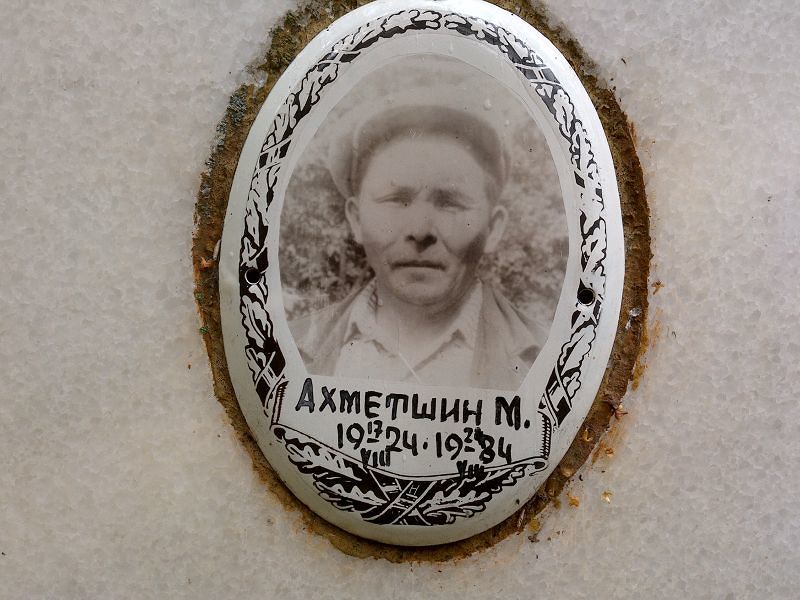 АХМЕТШИН М.
19 13/VIII 24. 19 24/VIII 84